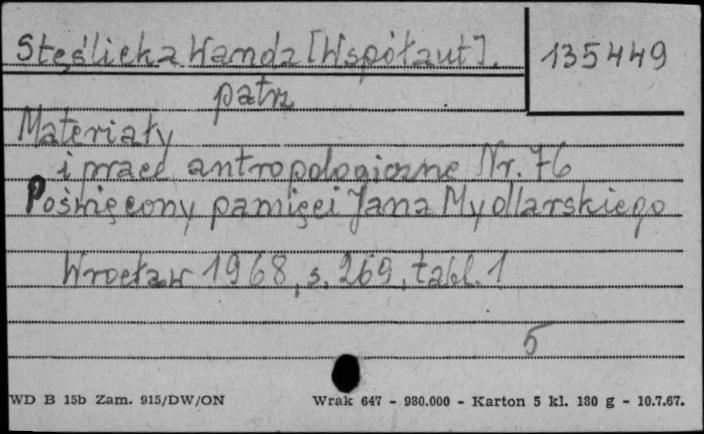 Stęślicka Wanda [Współaut]. 135449
patrz
Materiały
i prace antropologiczne Nr. 76
Poświęcony pamięci Jana Mydlarskiego
Wrocław 1968, s. 269, tabl. 1
5
WD B 15b Zam. 915/DW/ON Wrak 647 - 930.000 - Karton 5 kl. 180 g - 10.7.67.